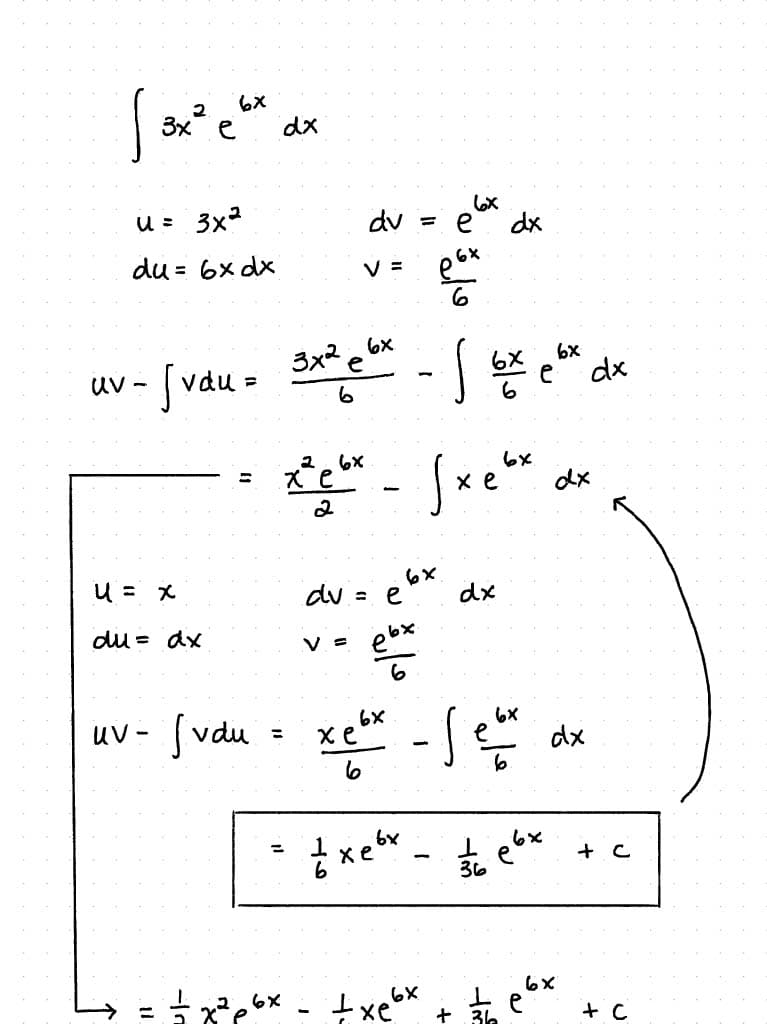 ∫ 3x² e^{6x} dx
u = 3x² dv = e^{6x} dx
du = 6x dx v = e^{6x}/6
uv - ∫ vdu = 3x² e^{6x}/6 - ∫ 6x/6 e^{6x} dx
= x² e^{6x}/2 - ∫ x e^{6x} dx
u = x dv = e^{6x} dx
du = dx v = e^{6x}/6
uv - ∫ vdu = x e^{6x}/6 - ∫ e^{6x}/6 dx
= 1/6 x e^{6x} - 1/36 e^{6x} + c
= 1/2 x² e^{6x} - 1/6 x e^{6x} + 1/36 e^{6x} + c